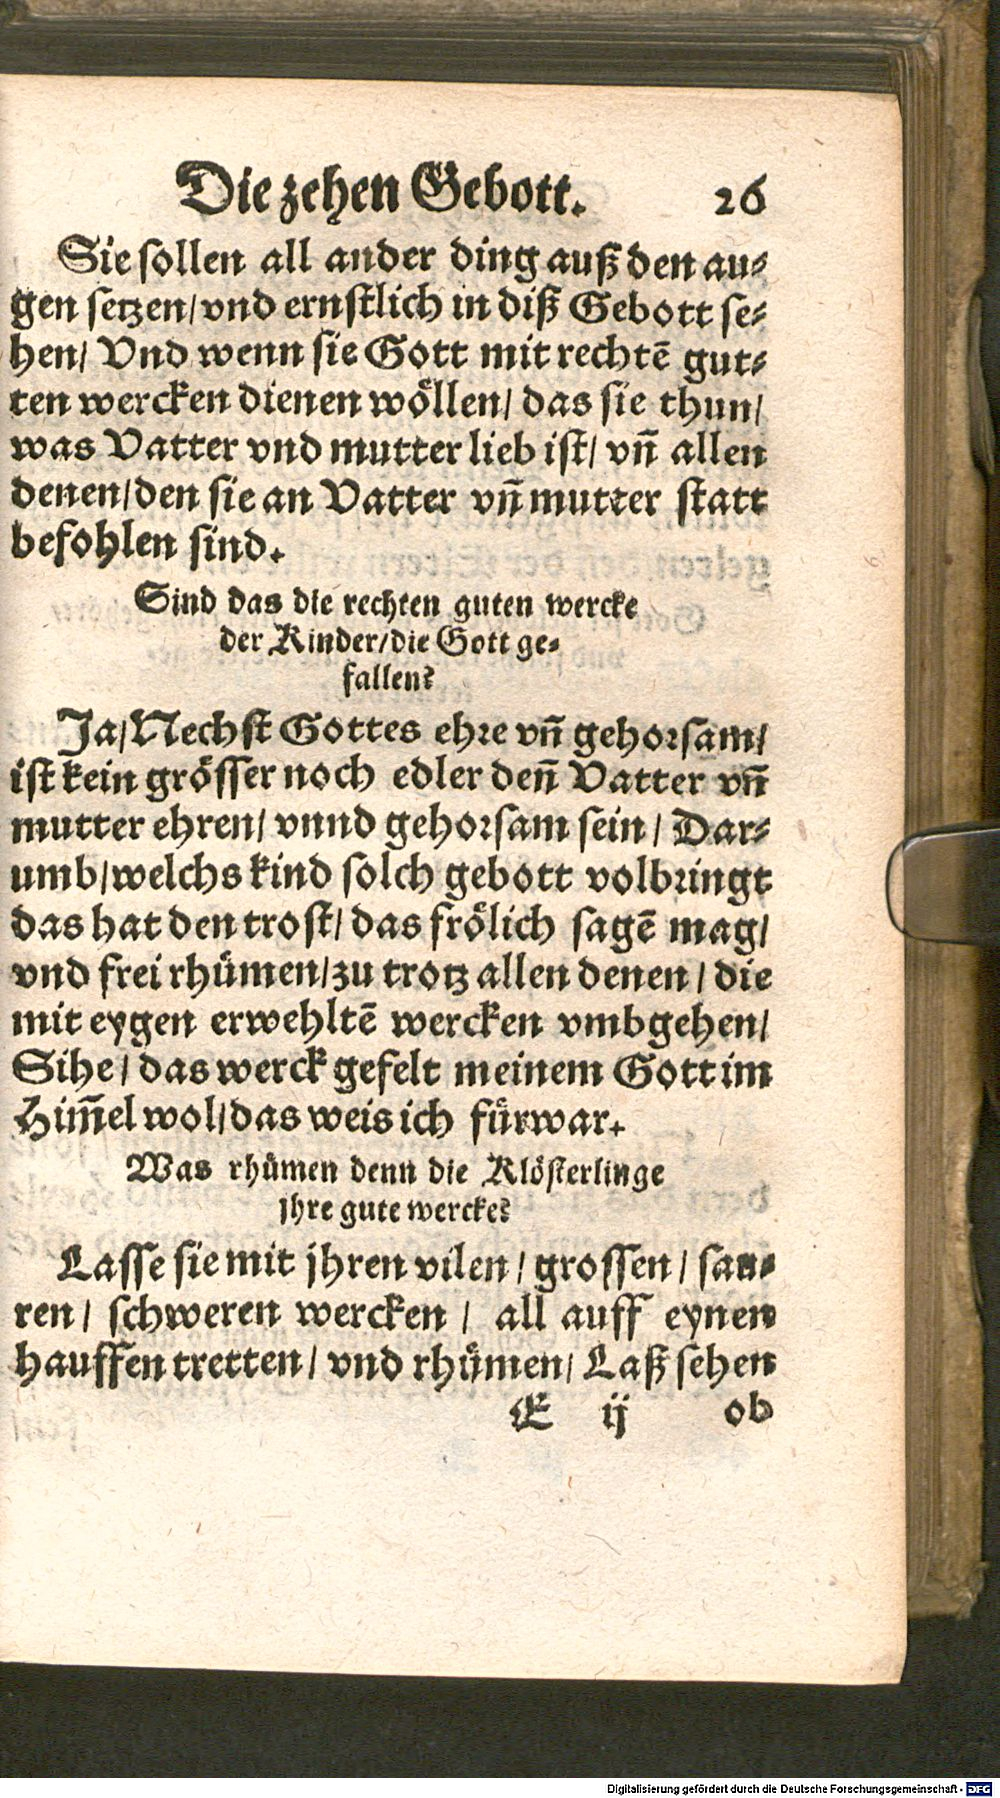 Die zehen Gebott. 26
Sie sollen all ander ding auß den au⸗
gen setzen/ vnd ernstlich in diß Gebott se⸗
hen/ Vnd wenn sie Gott mit rechtē gut⸗
ten wercken dienen wöllen/ das sie thun/
was Vatter vnd mutter lieb ist/ vñ allen
denen/ den sie an Vatter vñ mutter statt
befohlen sind.
Sind das die rechten guten wercke
der Kinder/ die Gott ge⸗
fallen?
Ja/ Nechst Gottes ehre vñ gehorsam/
ist kein grösser noch edler deñ Vatter vñ
mutter ehren/ vnnd gehorsam sein/ Dar⸗
umb/ welchs kind solch gebott volbringt
das hat den trost/ das frölich sagē mag/
vnd frei rhümen/ zu trotz allen denen/ die
mit eygen erwehltē wercken vmbgehen/
Sihe/ das werck gefelt meinem Gott im
Him̃el wol/ das weis ich fürwar.
Was rhümen denn die Klösterlinge
jhre gute wercke?
Lasse sie mit jhren vilen/ grossen/ sau⸗
ren/ schweren wercken/ all auff eynen
hauffen tretten/ vnd rhümen/ Laß sehen
E ij ob
Digitalisierung gefördert durch die Deutsche Forschungsgemeinschaft - DFG